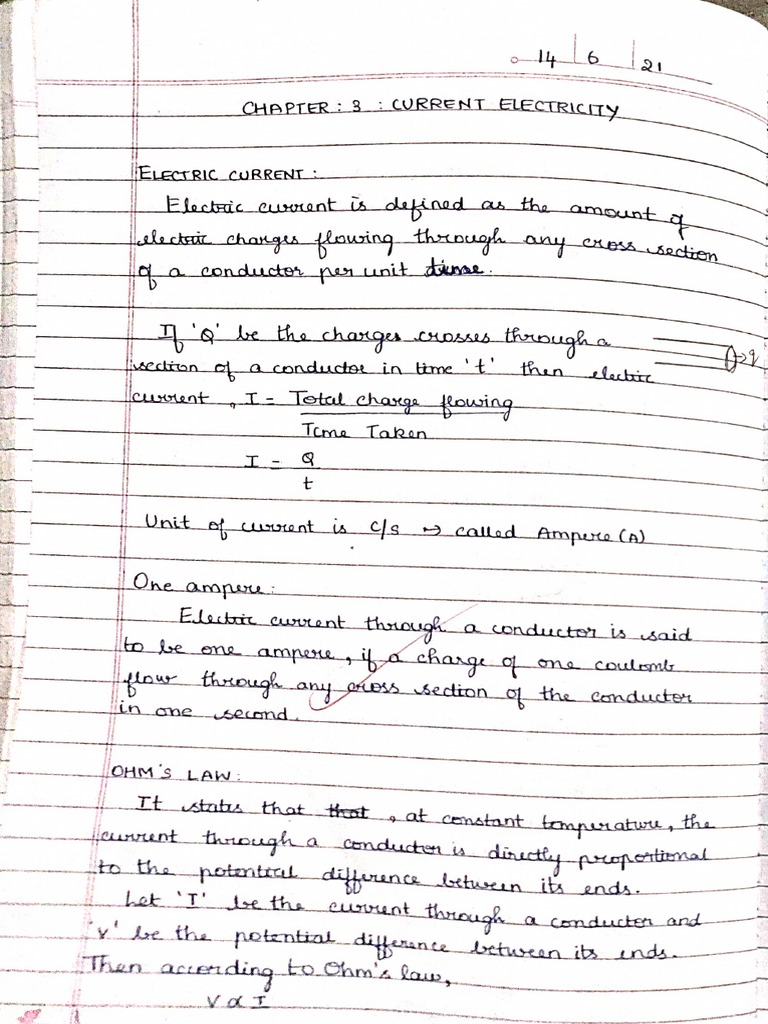 14 | 6 | 21
CHAPTER : 3 : CURRENT ELECTRICITY
ELECTRIC CURRENT :
Electric current is defined as the amount of
electric charges flowing through any cross section
of a conductor per unit time.
If 'Q' be the charges crosses through a
section of a conductor in time 't' then electric
current, I = Total charge flowing
Time Taken
I = Q
t
Unit of current is C/S → called Ampere (A)
One ampere :
Electric current through a conductor is said
to be one ampere, if a charge of one coulomb
flow through any cross section of the conductor
in one second.
OHM'S LAW :
It states that that, at constant temperature, the
current through a conductor is directly proportional
to the potential difference between its ends.
Let 'I' be the current through a conductor and
'V' be the potential difference between its ends.
Then according to Ohm's law,
V ∝ I